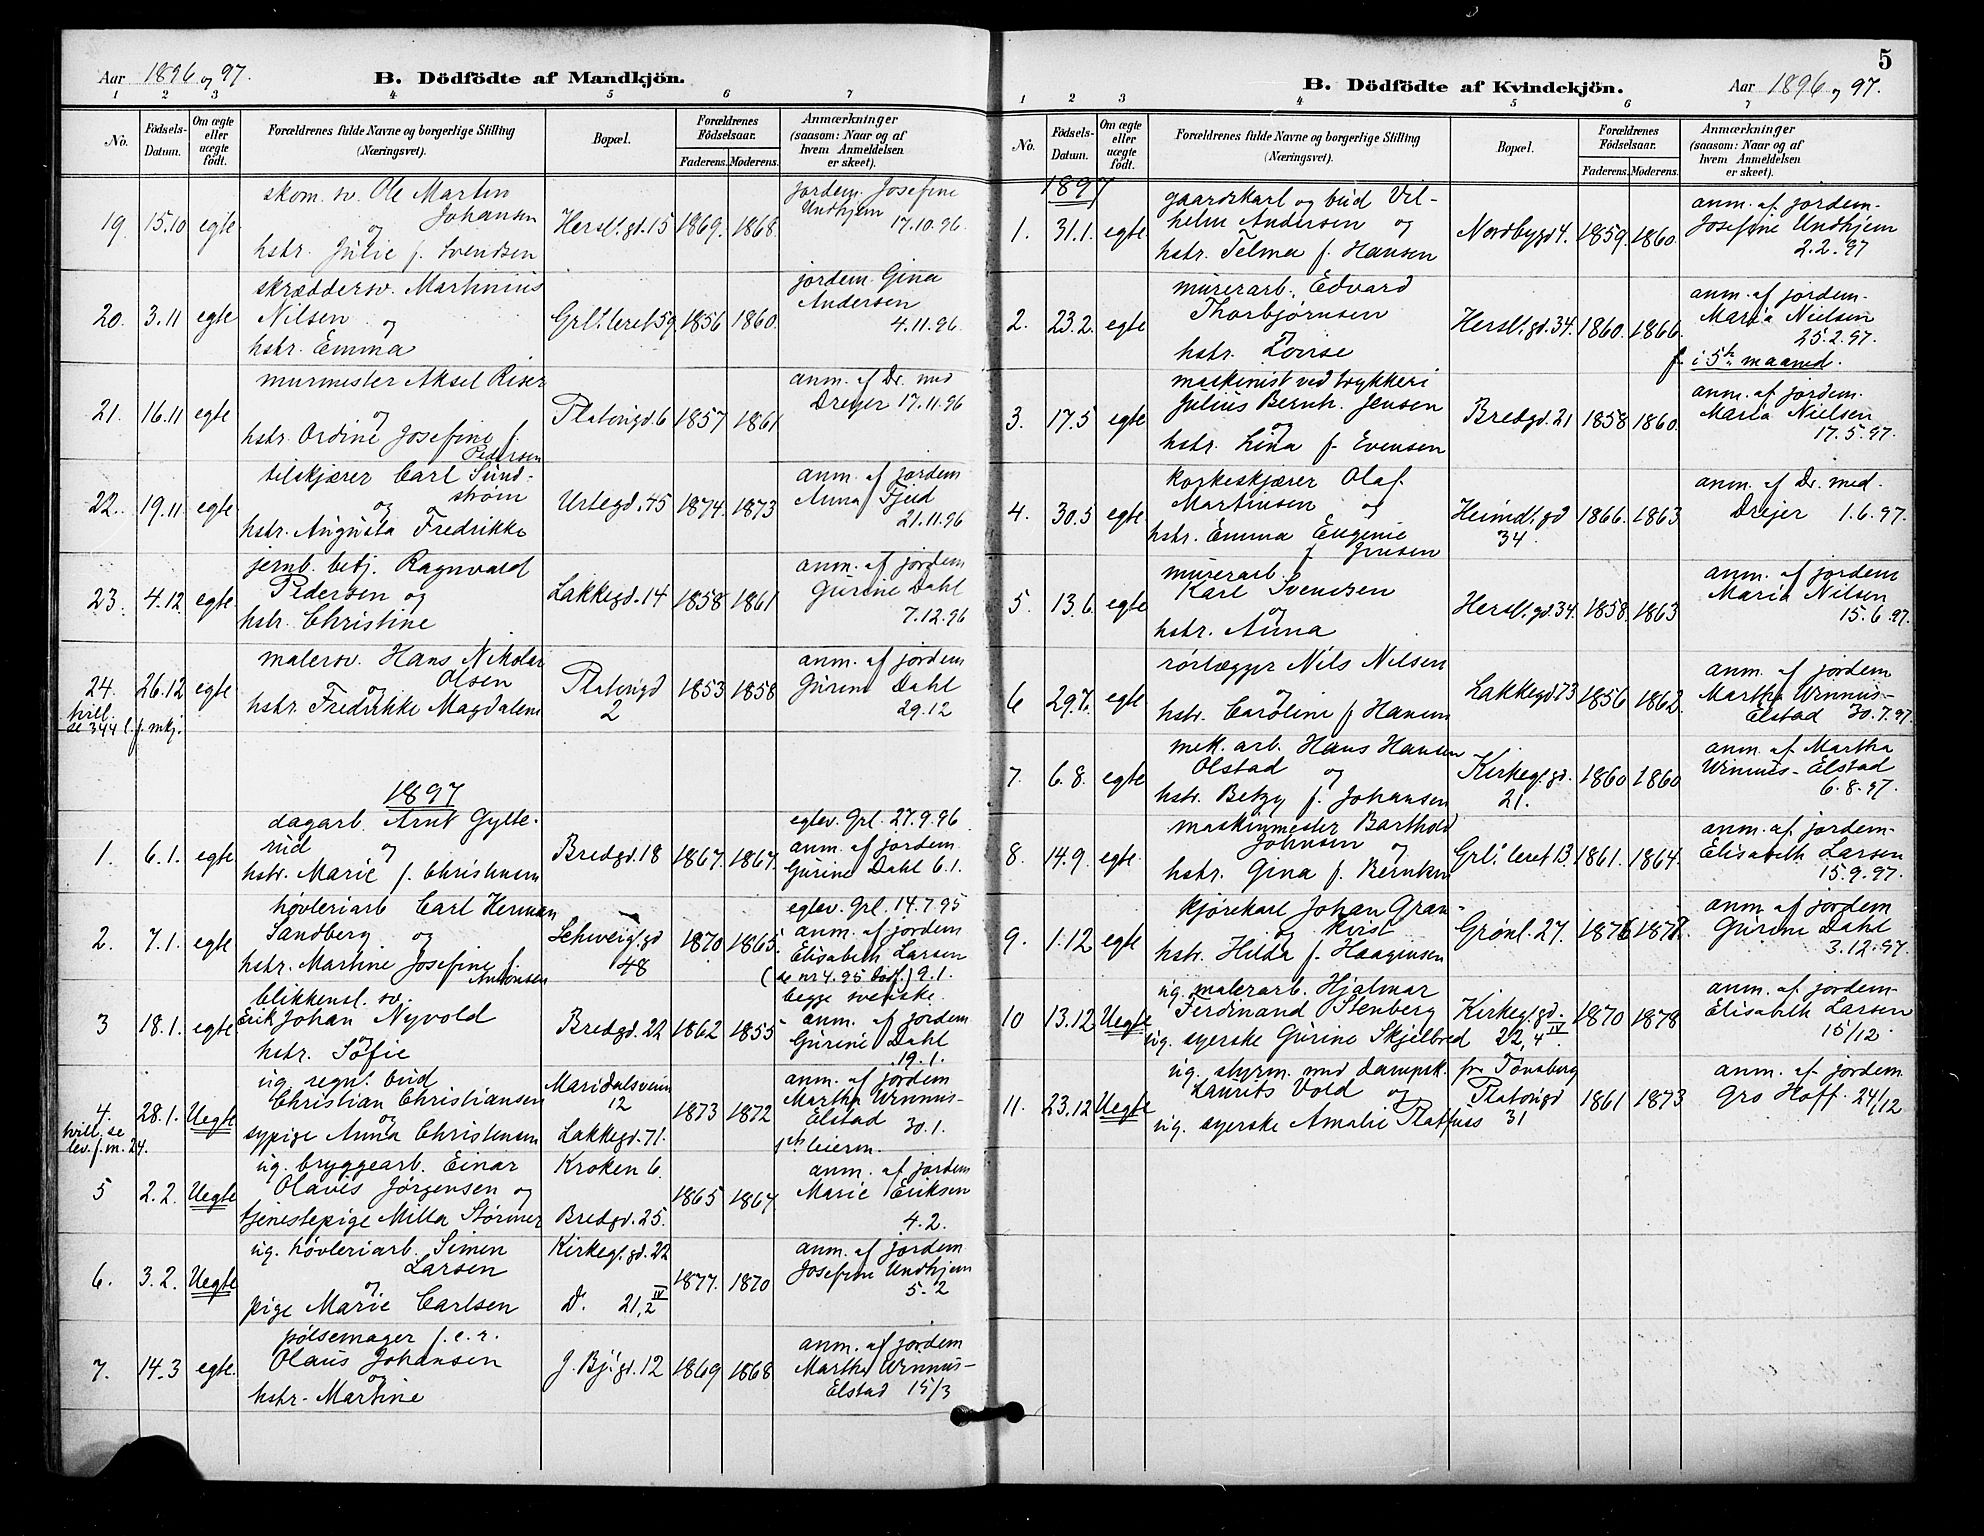 Aar 1896 og 97.
B. Dödfödte af Mandkjön.
1 2 3 4 5 6 7
No.
Födsels-Datum.
Om ægte eller uægte födt.
Forældrenes fulde Navne og borgerlige Stilling (Næringsvei).
Bopæl.
Forældrenes Födselsaar.
Faderens. Moderens.
Anmærkninger (saasom: Naar og af hvem Anmeldelsen er skeet).
skom. sv. Ole Martin
Johansen
og
hstr. Julie f. Svendsen
19. 15.10 egte Hersl. gd. 15 1869. 1868.
jordem. Josefine
Undhjem
17.10.96
skræddersv. Martinius
Nilsen og
hstr. Emma
20. 3.11 egte Grl. leret 59 1856 1860.
jordem. Gina
Andersen
4.11.96
murmester Aksel Riser
og
hstr. Ordine Josefine f.
Pedersen
21. 16.11 egte Platousgd. 6 1857 1861
anm. af Dr. med
Drejer 17.11.96
tilskjærer Carl Sund-
strøm
og
hstr. Augusta Fredrikke
22. 19.11 egte Urtegd. 45 1874. 1873
anm. af jordem
Anna Fjeld
21.11.96
jernb. betj. Ragnvard
Pedersen og
hstr. Christine
23. 4.12 egte Lakkegd. 14 1858 1861
anm. af jordem
Gurine Dahl
7.12.96
malersv. Hans Nikolai
Olsen
og
hstr. Fredrikke Magdalene
24. 26.12 egte Platousgd 2 1853 1858
anm. af jordem
Gurine Dahl
29.12
tvill.
se 344 l. f. mkj.
1897
dagarb. Arnt Gylte-
rud og
hstr. Marie f. Christensen
1. 6.1. egte Bredgd. 18 1867. 1867.
egtev. Grl. 27.9.96
anm. af jordem.
Gurine Dahl 6.1.
høvleriarb Carl Herman
Sandberg og
hstr. Martine Josefine f.
Antonsen
2. 7.1. egte Schweig. gd 48 1870 1865.
egtev. Grl. 14.7.95
anm. af jordem
Elisabeth Larsen
(se nr 4. 95 Dødf.) 9.1.
begge svenske.
blikkensl. sv.
Erik Johan Nyvold
og
hstr. Sofie
3 18.1. egte Bredgd. 22 1862 1855
anm. af jordem
Gurine Dahl
19.1.
ug. regnl. bud
Christian Christiansen
og
sypige Anna Christensen
4. 28.1. Uegte Maridalsveien 12
Lakkegd. 71. 1873 1872
tvill. se
lev. f. m. 24.
anm. af jordem
Martha Winnius-
Elstad 30.1.
1ste leierm.
ug. bryggearb. Einar
Olavis Jørgensen og
tjenestepige Milla Størmer
5 2.2. Uegte Kroken 6.
Bredgd. 25. 1865 1867
anm. af jordem
Marie Eriksen
4.2.
ug. høvleriarb. Simen
Larsen
og
pige Marie Carlsen
6. 3.2. Uegte Kirkegl. gd. 22
D. 21, 2 IV 1877. 1870
anm. af jordem
Josefine Undhjem
5.2
pølsemager f.e.r.
Olaus Johansen
og
hstr. Martine
7. 14.3 egte. J. Bj. gd. 12 1869 1868
anm. af jordem
Martha Winnius-
Elstad 15/3
5
B. Dödfödte af Kvindekjön.
Aar 1896 og 97.
1 2 3 4 5 6 7
No.
Födsels-Datum.
Om ægte eller uægte födt.
Forældrenes fulde Navne og borgerlige Stilling (Næringsvei).
Bopæl.
Forældrenes Födselsaar.
Faderens. Moderens.
Anmærkninger (saasom: Naar og af hvem Anmeldelsen er skeet).
1897
gaardskarl og bud Vil-
helm Andersen og
hstr. Telma f. Hansen
1. 31.1. egte Nordbygd 4. 1859 1860.
anm. af jordem.
Josefine Undhjem
2.2.97
murerarb. Edvard
Thorbjørnsen
og
hstr. Lovise
2. 23.2. egte Hersl. gd. 34. 1860. 1866.
anm. af jordem.
Maria Nielsen
25.2.97.
f. i 5te maaned.
maskinist ved trykkeri
Julius Bernh. Jensen
og
hstr. Lina f. Evensen
3. 17.5 egte Bredgd. 21 1858 1860.
anm. af jordem.
Maria Nielsen
17.5.97.
korkeskjærer Olaf
Martinsen og
hstr. Emma Eugenie
f Jensen
4. 30.5 egte Heimdl. gd 34 1866. 1863
anm. af Dr. med.
Drejer 1.6.97.
murerarb.
Karl Svendsen
og
hstr. Anna
5. 13.6. egte Hersl. gd. 34. 1858. 1863
anm. af jordem
Maria Nilsen
15.6.97.
rørlægger Nils Nilsen
og
hstr. Caroline f Hansen
6 29.7. egte Lakkegd 73 1856 1862.
anm. af jordem
Martha Winnius-
Elstad 30.7.97.
mek. arb. Hans Hansen
Olstad og
hstr. Betzy f. Johansen
7. 6.8. egte Kirkegl. gd. 21. 1860 1860
anm. af Martha
Winnius-Elstad
6.8.97.
maskinmester Barthold
Johnsen og
hstr. Gina f. Berntsen
8. 14.9. egte. Grl. leret 13. 1861. 1864.
anm. af jordem-
Elisabeth Larsen
15.9.97.
kjørekarl Johan Gran-
kvist
og
hstr. Hilda f. Haagensen
9. 1.12 egte Grønl. 27. 1876 1877.
anm. af jordem
Gurine Dahl
3.12.97.
ug. malerarb. Hjalmar
Ferdinand Stenberg
ug. syerske Gurine Skjelbred
10 13.12 Uegte Kirkegl. gd. 22, 4 IV. 1870 1878
anm. af jordem-
Elisabeth Larsen
15/12.
ug. styrm. med dampsk.
Laurits Vold og
ug. syerske Amalie Platfuss
11. 23.12 Uegte fra Tønsberg
Platousgd 31 1861 1873
anm. af jordem
Gro Hoff. 24/12